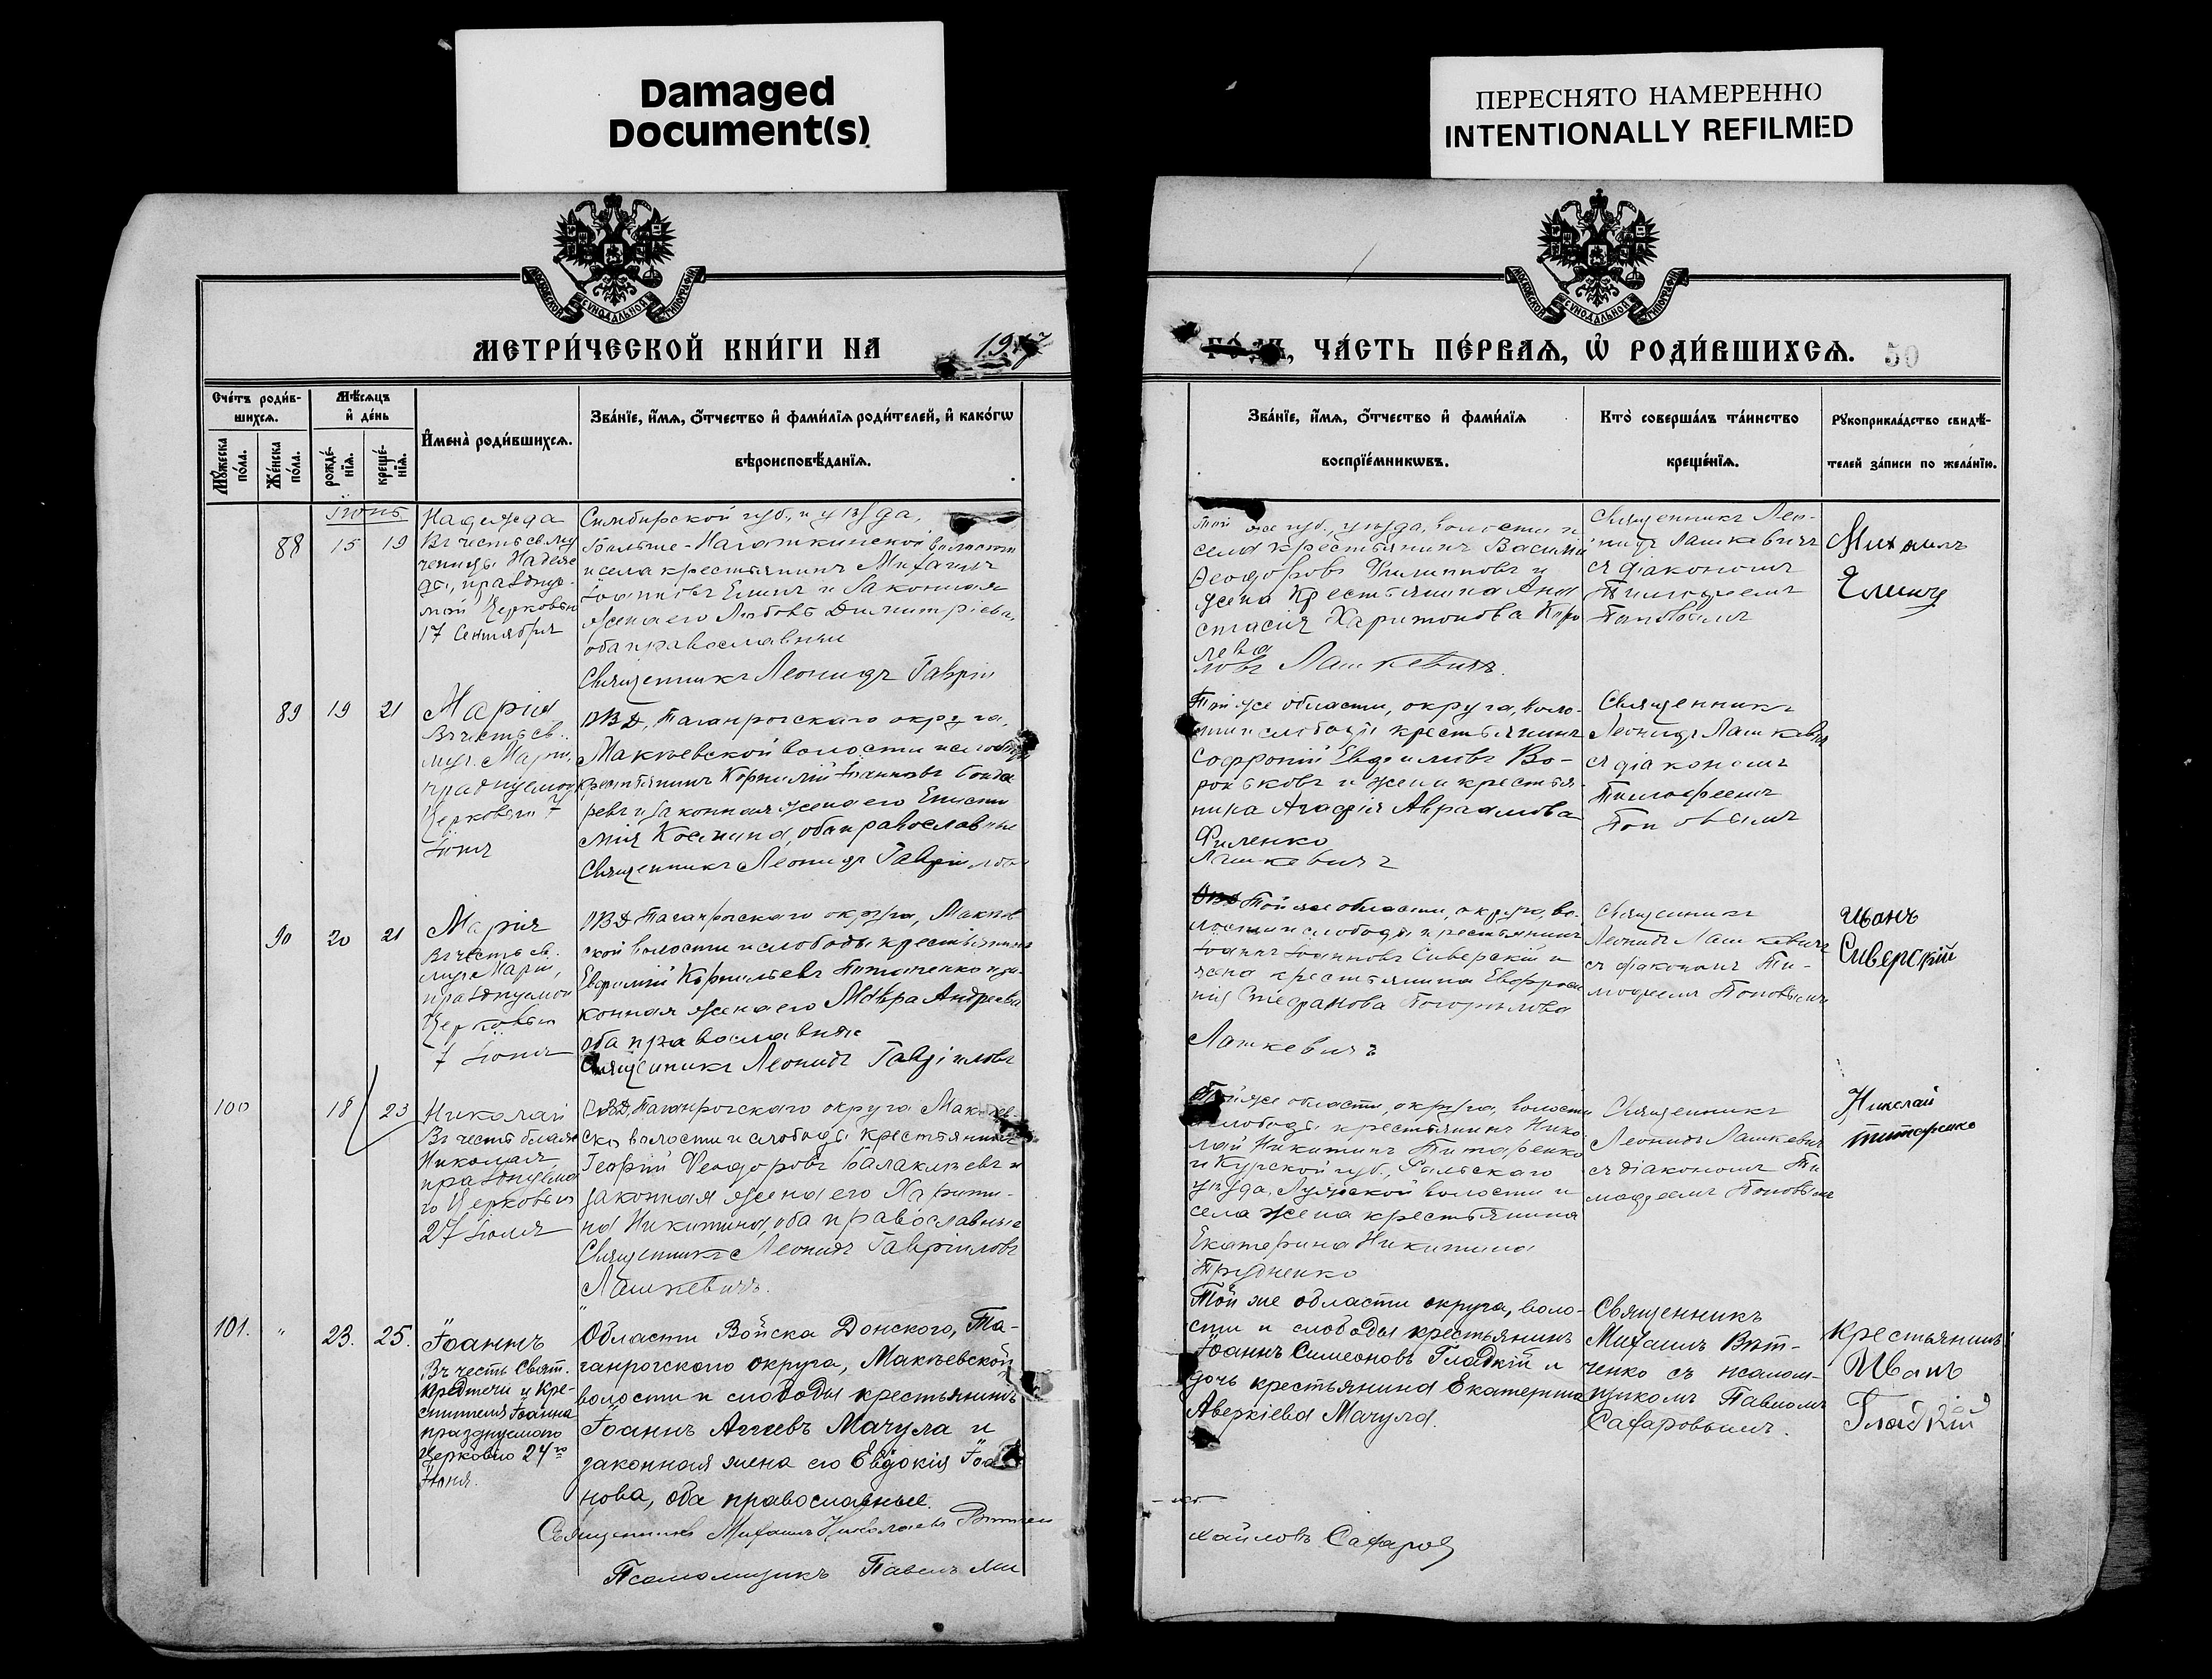 Damaged
Document(s)
ПЕРЕСНЯТО НАМЕРЕННО
INTENTIONALLY REFILMED
МОСКОВСКОЙ СѴНОДАЛЬНОЙ ТИПОГРАФІИ
МОСКОВСКОЙ СѴНОДАЛЬНОЙ ТИПОГРАФІИ
МЕТРИ́ЧЕСКОЙ КНИ́ГИ НА 1917
ЧА́СТЬ ПЕ́РВАѦ, Ѡ҆ РОДИ́ВШИХСѦ. 50
Сче́тъ роди́в-
шихсѧ.
Мꙋ́жеска
по́ла.
Же́нска
по́ла.
Мѣ́сѧцъ
и҆ де́нь
рожде́-
нїѧ.
креще́-
нїѧ.
И҆мена̀ роди́вшихсѧ.
Зва́нїе, и҆́мѧ, ѻ҆́тчество и҆ фами́лїѧ роди́телей, и҆ како́гѡ
вѣроисповѣ́данїѧ.
Зва́нїе, и҆́мѧ, ѻ҆́тчество и҆ фами́лїѧ
воспрїе́мникѡвъ.
Кто̀ соверша́лъ та́инство
креще́нїѧ.
Рꙋкоприкла́дство свидѣ́-
телей за́писи по жела́нїю.
Іюнь
88 15 19
Надежда
Въ честь св. му
ченицы Надеж
ды, празднуе-
мой Церковью
17 Сентября
Симбирской губ., и уѣзда,
Больше-Нагаткинской волости
и села крестьянинъ Михаилъ
Іоанновъ Елинъ и законная
жена его Любовь Димитріева,
оба православные
Священникъ Леонидъ Гавріи
Той же губ., уѣзда, волости и
села крестьянинъ Василій
Ѳеодоровъ Филипповъ и
жена крестьянина Ана
стасія Харитонова Коро
лева
ловъ Лашкевичъ.
Священникъ Лео-
нидъ Лашкевичъ
съ діакономъ
Тимоѳеемъ
Поповымъ
Михаилъ
Елинъ
89 19 21
Марія
Въ честь св.
муч. Маріи,
празднуемой
Церковью 7
Іюня
ОВД, Таганрогскаго округа,
Макѣевской волости и слободы
крестьянинъ Корнилій Іоанновъ Бонда
ревъ и законная жена его Еписти
мія Космина, оба православные
Священникъ Леонидъ Гавріиловъ
Той же области, округа, воло-
сти и слободы крестьянинъ
Софроній Евдокимовъ Во-
ронковъ и жена крестья-
нина Агафія Авраамова
Филенко
Лашкевичъ
Священникъ
Леонидъ Лашкевичъ
съ діакономъ
Тимоѳеемъ
Поповымъ
90 20 21
Марія
Въ честь св.
муч. Маріи,
празднуемой
Церковью
7 Іюня
ОВД Таганрогскаго округа, Макѣев
ской волости и слободы крестьянинъ
Евфимій Корнильевъ и за-
конная жена его Мавра Андреева
оба православные
Священникъ Леонидъ Гавріиловъ
Той же области, округа, во-
лости и слободы крестьянинъ
Іоаннъ Іоанновъ Сиверскій и
жена крестьянина Евфроси
нія Стефанова Погорѣлова
Лашкевичъ
Священникъ
Леонидъ Лашкевичъ
съ діакономъ Ти-
моѳеемъ Поповымъ
Иванъ
Сиверскій
100 18 23
Николай
Въ честь блаж
Николая
празднуема
го Церковью
27 Іюля
ОВД, Таганрогскаго округа Макѣев
ской волости и слободы крестьянинъ
Георгій Ѳеодоровъ Балаклѣевъ и
законная жена его Харити-
на Никитина, оба православные
Священникъ Леонидъ Гавріиловъ
Лашкевичъ.
Той же области, округа, волости
слободы крестьянинъ Нико
лай Никитинъ Титаренко
и Курской губ.,
уѣзда, волости и
села жена крестьянина
Екатерина Никитина
Трудненко
Священникъ
Леонидъ Лашкевичъ
съ діакономъ Ти
моѳеемъ Поповымъ
Николай
Титаренко
101. " 23. 25.
Іоаннъ
Въ честь Свят.
Предтечи и Кре-
стителя Іоанна
празднуемаго
Церковію 24го
Іюня.
Области Войска Донского, Та-
ганрогскаго округа, Макѣевской
волости и слободы крестьянинъ
Іоаннъ Аггеевъ Мачула и
законная жена его Евдокія Іоан
нова, оба православные.
Священникъ Михаилъ Николаевъ
Псаломщикъ Павелъ Ми
Той же области округа, воло-
сти и слободы крестьянинъ
Іоаннъ Симеоновъ Гладкій и
дочь крестьянина Екатерина
Аверкіева Мачула.
хайловъ Сафаровъ
Священникъ
Михаилъ Вят-
ченко съ псалом-
щикомъ Павломъ
Сафаровымъ.
Крестьянинъ
Иванъ
Гладкій